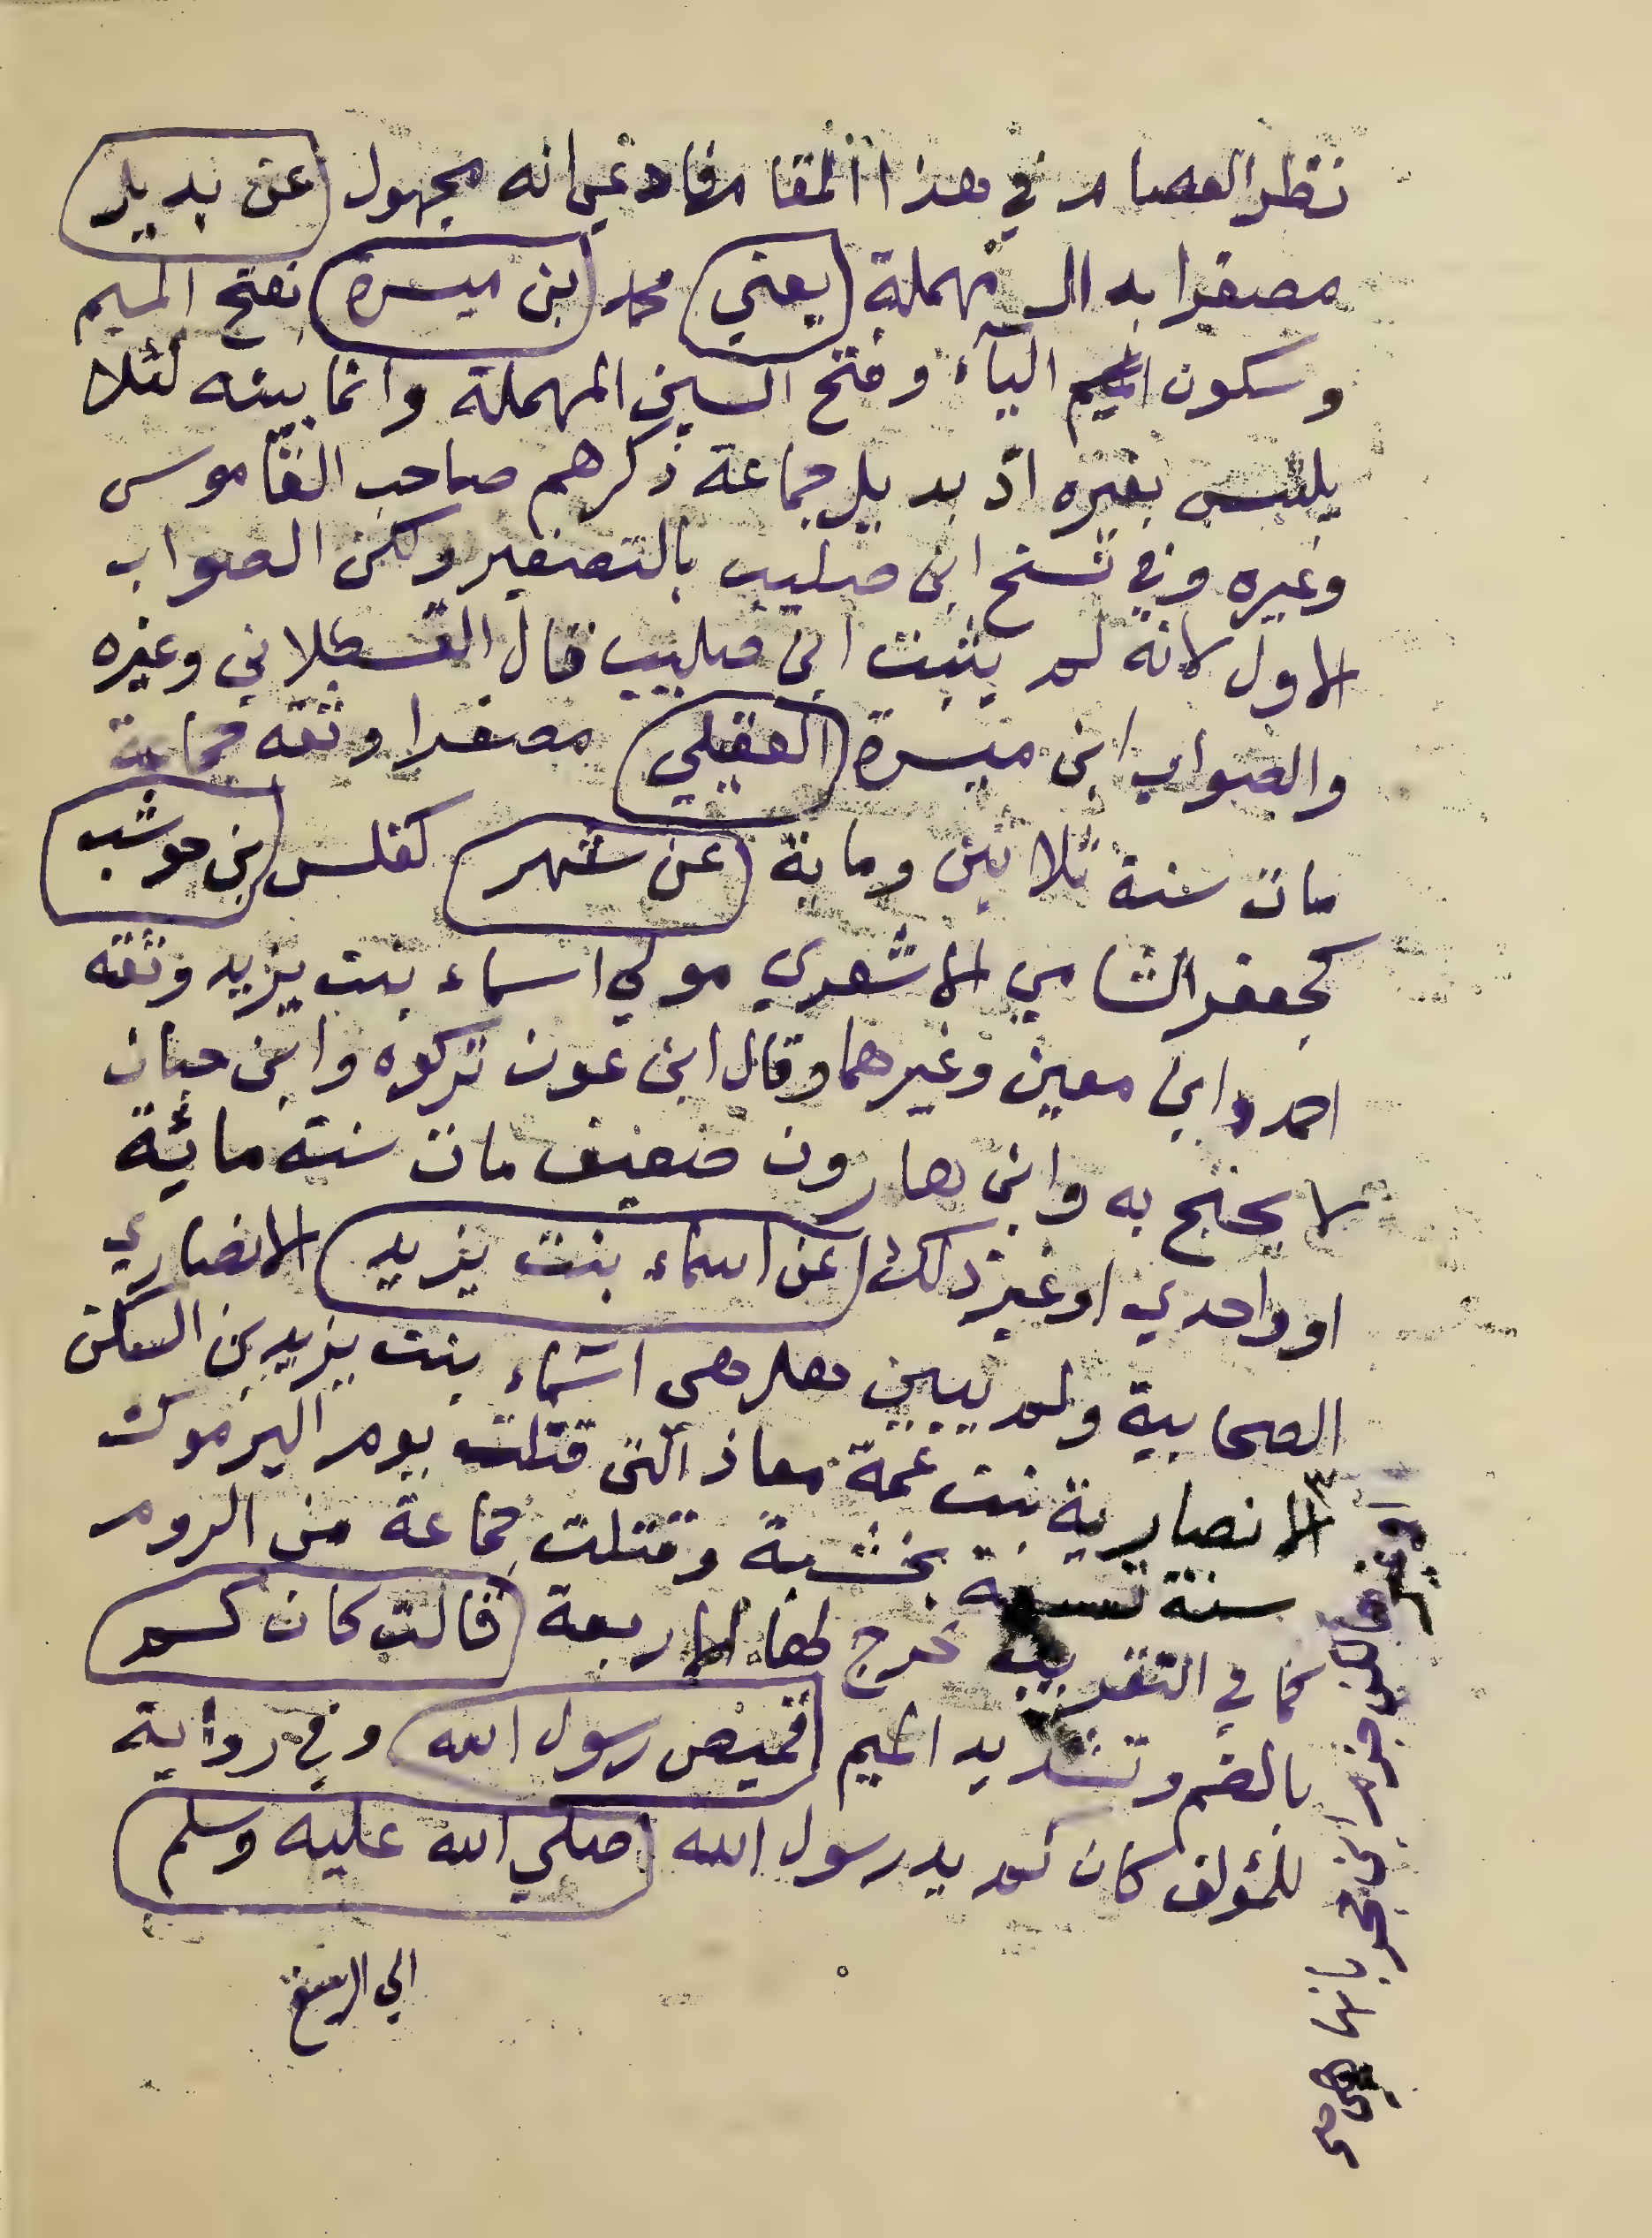 نظر العصام في هذا المقام فادعى انه مجهول (عن بديل)
مصغرا بدال مهملة (يعني) محمد (بن ميسرة) بفتح الميم
وسكون الميم اليآء وفتح السين المهملة وانما بينه لئلا
يلتبس بغيره اذ بديل جماعة ذكرهم صاحب القاموس
وغيره وفي نسخ ابن صليب بالتصغير ولكن الصواب
الاول لانه لم يثبت ابن صليب قال القسطلاني وغيره
والصواب ابن ميسرة (العقيلي) مصغرا وثقه جماعة
مات سنة ثلاثين وماية (عن شهر) كفلس (بن حوشب)
كجعفر الشامي الاشعري مولى اسماء بنت يزيد وثقه
احمد وابن معين وغيرهما وقال ابن عون تركوه وابن حبان
لا يحتج به وابن هارون ضعيف مات سنة مائة
او واحدي او غير ذلك (عن اسماء بنت يزيد) الانصاري
الصحابية ولم يبين هل هى اسماء بنت يزيد بن السكن
الانصارية بنت عمة معاذ التى قتلت يوم اليرموك
سنة تسعة بخشبة وقتلت جماعة من الروم
كما في التقريب خرج لها الاربعة (قالت كان كم)
بالضم وتشديد الميم (قميص رسول الله) وفي رواية
للمؤلف كان كم يد رسول الله (صلى الله عليه وسلم)
الى الرسغ
او غيرها لكن جزم ابن حجر بانها هى